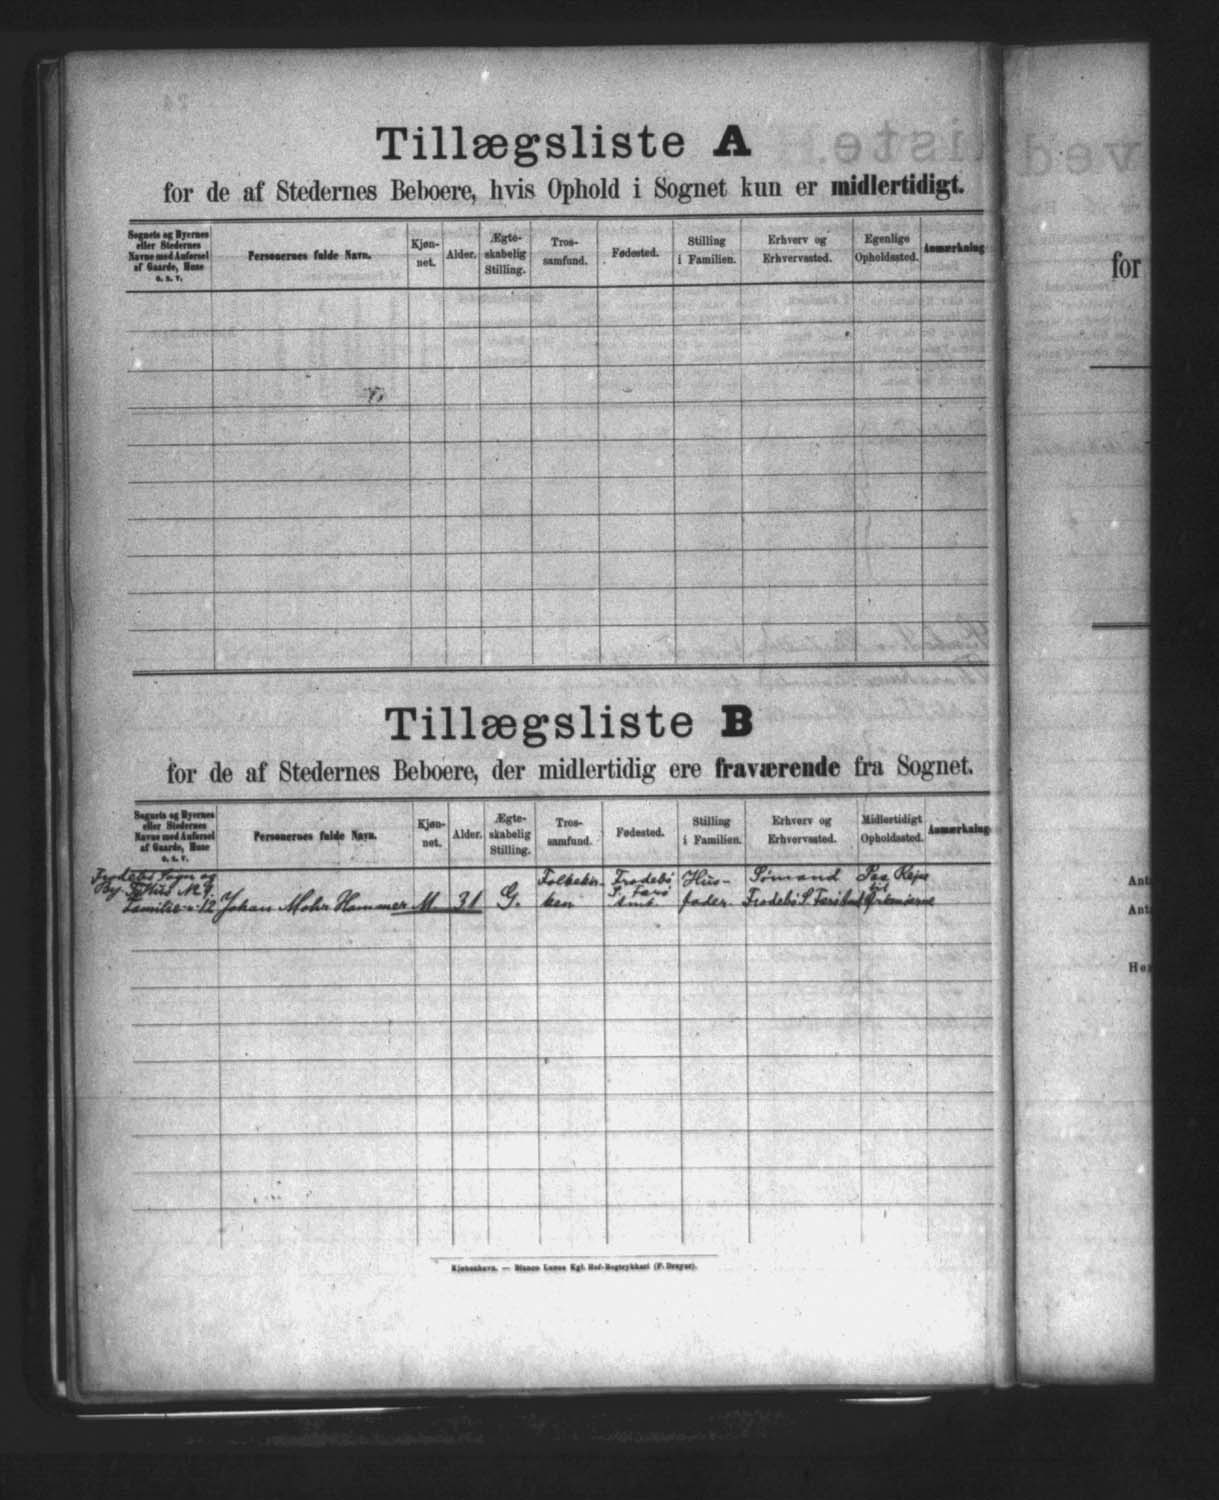 Tillægsliste A
for de af Stedernes Beboere, hvis Ophold i Sognet kun er midlertidigt.
Sognets og Byernes eller Stedernes Navne med Anførsel af Gaarde, Huse o. s. v.
Personernes fulde Navn.
Kjøn-net.
Alder.
Ægte-skabelig Stilling.
Tros-samfund.
Fødested.
Stilling i Familien.
Erhverv og Erhvervssted.
Egenlige Opholdssted.
Anmærkning
Tillægsliste B
for de af Stedernes Beboere, der midlertidig ere fraværende fra Sognet.
Sognets og Byernes eller Stedernes Navne med Anførsel af Gaarde, Huse o. s. v.
Personernes fulde Navn.
Kjøn-net.
Alder.
Ægte-skabelig Stilling.
Tros-samfund.
Fødested.
Stilling i Familien.
Erhverv og Erhvervssted.
Midlertidigt Opholdssted.
Anmærkning
Frodebø Sogn og
By Hus N. 9.
Familie 12
Johan Mohr Hammer
M
31
G.
Folkekir-
ken
Frodebø
S. Færø
Amt
Hus-
fader.
Sømand
Frodebø S.
Paa Rejse
til
Kjøbenhavn. — Bianco Lunos Kgl. Hof-Bogtrykkeri (F. Dreyer).
for
Ant
Ant